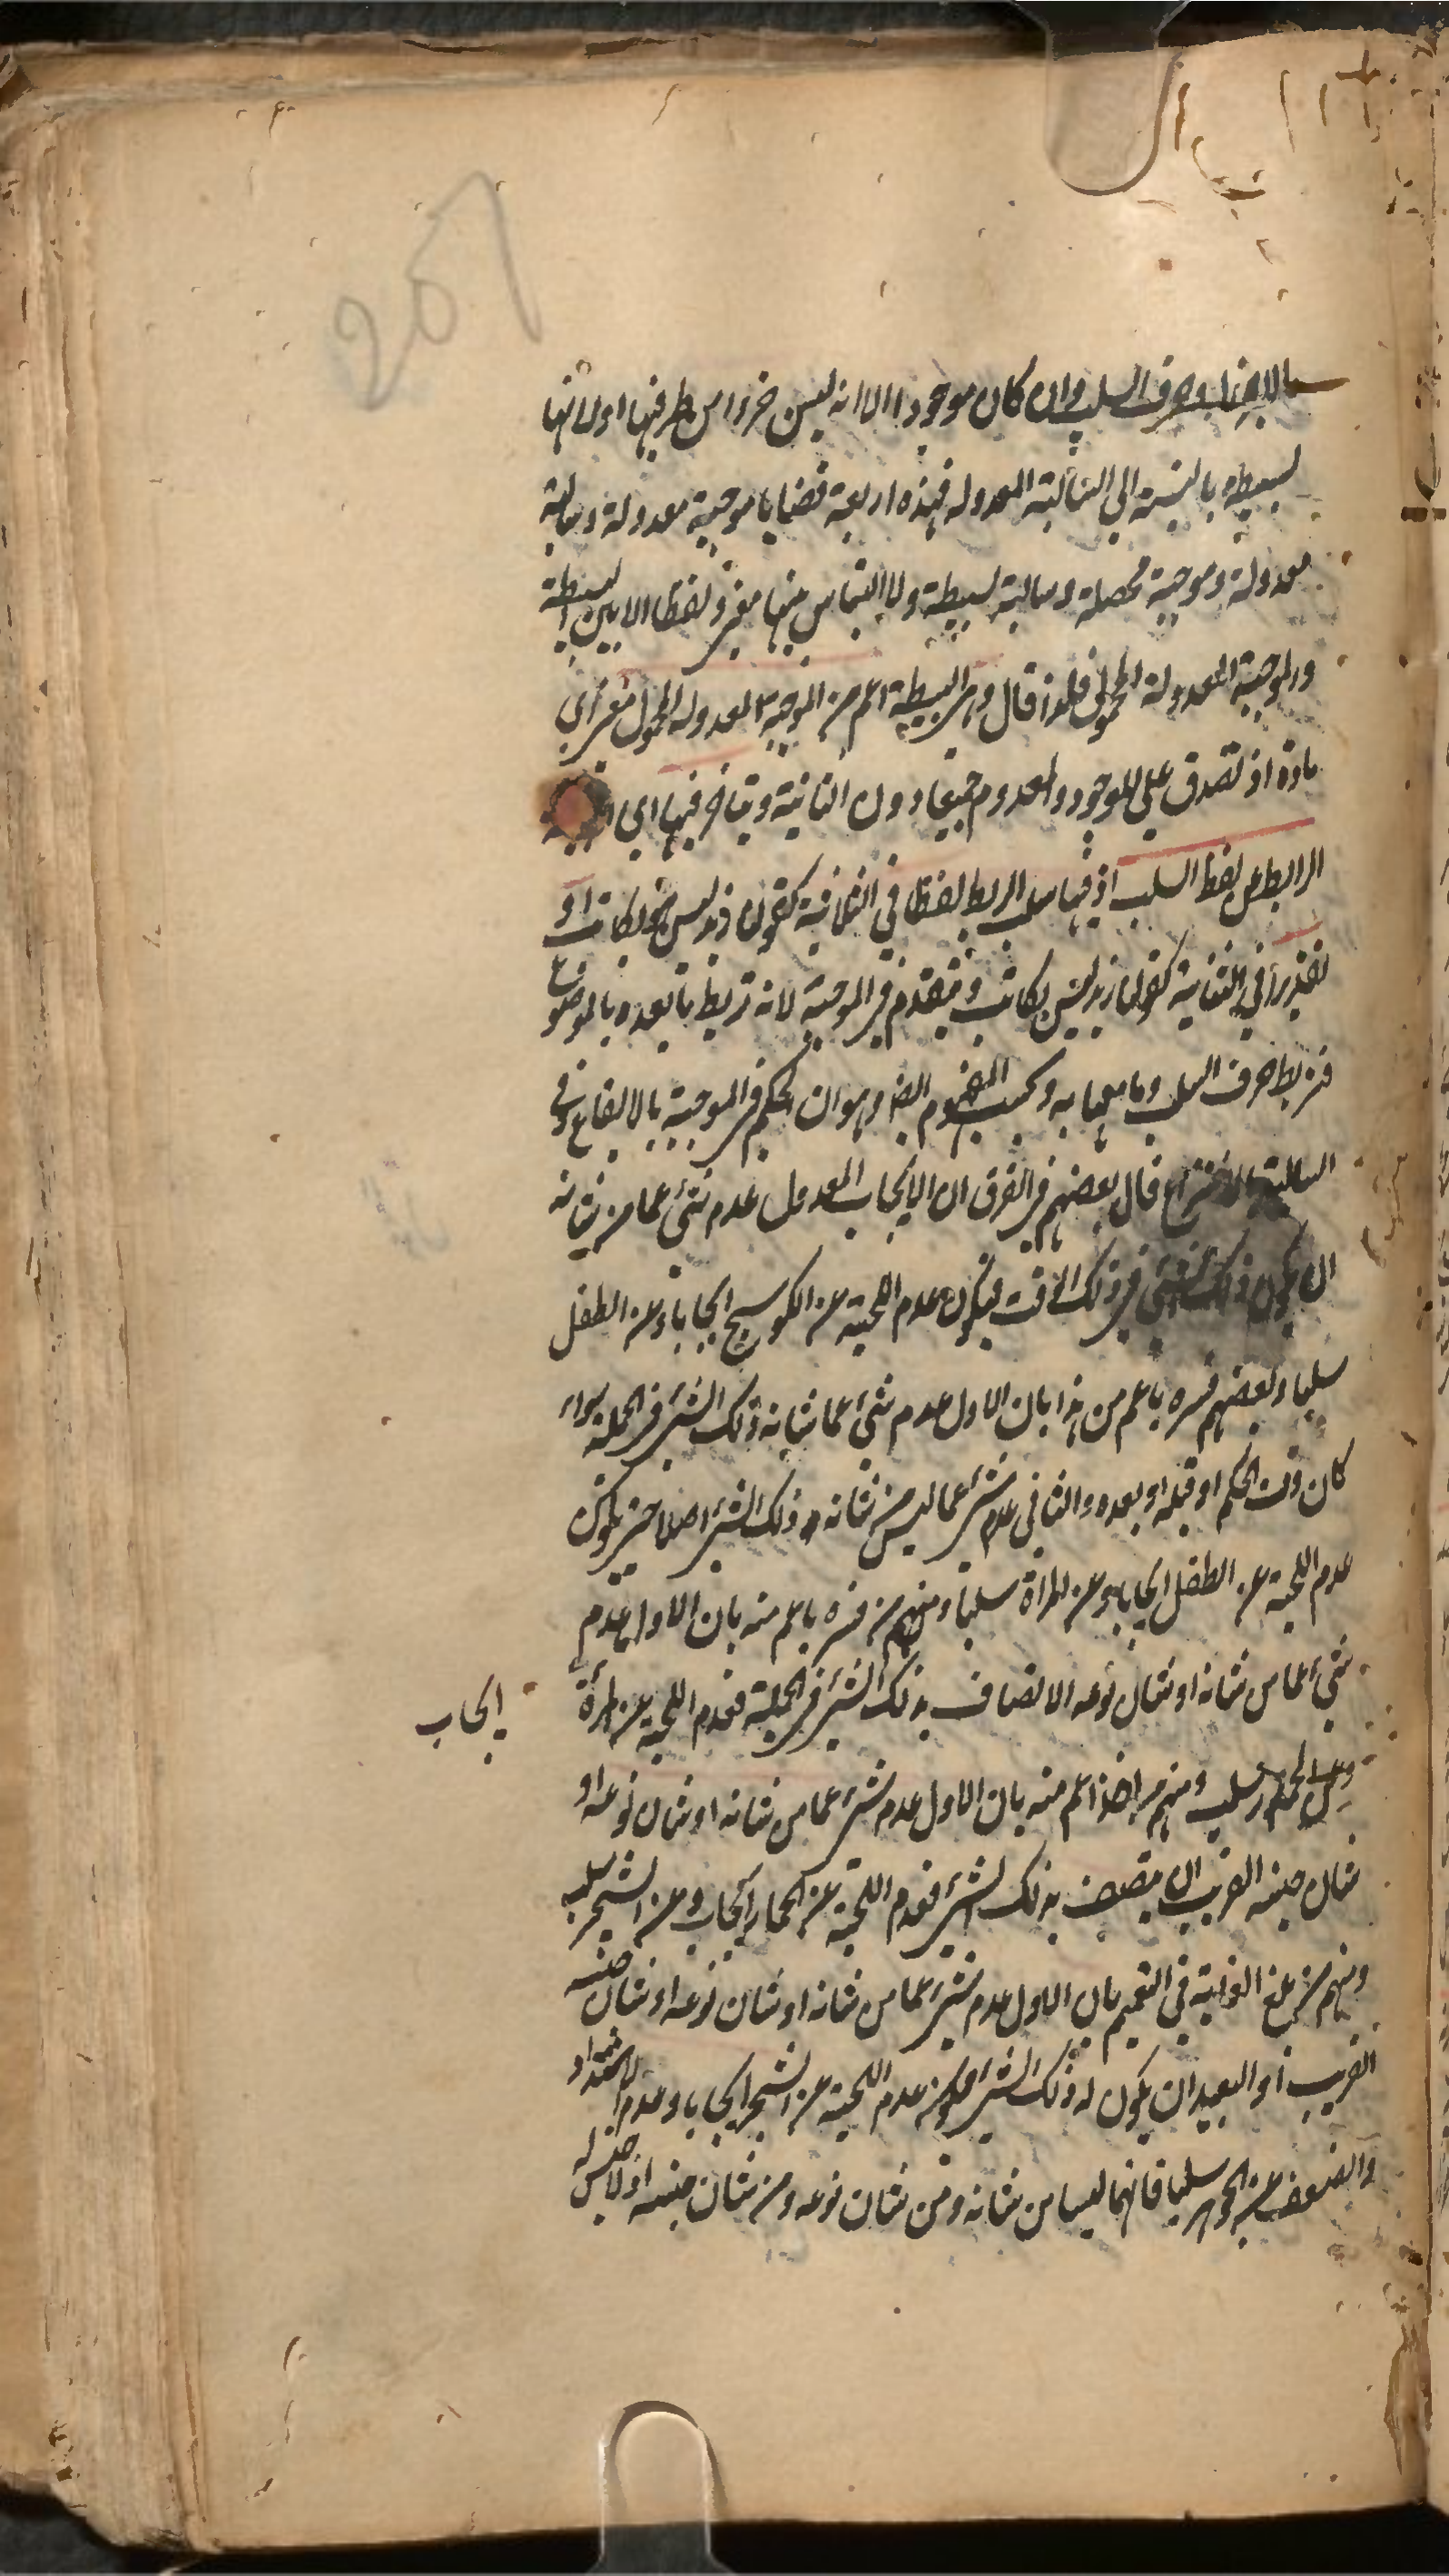 وحرف السلب وان كان موجودا الا انه ليس جزءا من طرفيها او لانها
بسيطه بالنسبة الي السالبة المعدوله فهذه اربعة قضايا موجبة معدولة وسالبة
معدولة وموجبة محصلة وسالبة بسيطة ولا التباس منها معنى ولفظا الا بين البسيطة
والموجبة المعدولة المحمول فلذا قال وهي البسيطة اعم من الموجبة المعدوله المحمول معنى اي
مادة اذ تصدق علي الموجود والمعدوم جميعا دون الثانية ويتاخر فيها اي
الرابط عن لفظ السلب اذ فيها سلب الربط لفظا في الثلاثية كقولنا زيد ليس هو بكاتب او
تقديرا في الثنائية كقولنا زيد ليس بكاتب ويتقدم في الموجبة لانه تربط ما بعده بالموضوع
فيربط حرف السلب وما معها به وبحسب المفهوم ايضا وهو ان الحكم في الموجبة بالايقاع وفي
السالبة بالانتزاع قال بعضهم في الفرق ان الايجاب المعدول عدم شئ عما من شانه
ان يكون ذلك الشئ في ذلك الوقت فيكون عدم اللحية عن الكوسج ايجابا وعن الطفل
سلبا وبعضهم فسره باعم من هذا بان الاول عدم شئ عما شانه ذلك الشئ في الجملة سواء
كان وقت الحكم او قبله او بعده والثاني عدم شئ عما ليس من شانه ذلك الشئ اصلا حتى يكون
عدم اللحية عن الطفل ايجابا وعن المراة سلبا ومنهم من فسره باعم منه بان الاول عدم
شئ عما من شانه او شان نوعه الاتصاف بذلك الشئ في الجملة فعدم اللحية عن المرأة
ايجاب
وعن الحمار سلب ومنهم من اخذ اعم منه بان الاول عدم شئ عما من شانه او شان نوعه او
شان جنسه القريب ان يتصف بذلك الشئ فعدم اللحية عن الحمار ايجاب وعن الشجر سلب
ومنهم من بلغ الغاية في التعميم بان الاول عدم شئ عما من شانه او شان نوعه او شان جنسه
القريب او البعيد ان يكون له ذلك الشئ فيكون عدم اللحية عن الشجر ايجابا وعدم الاشتداد
والضعف عن الجوهر سلبا فانهما ليسا من شانه ومن شان نوعه ومن شان جنسه اذ لا جنس له